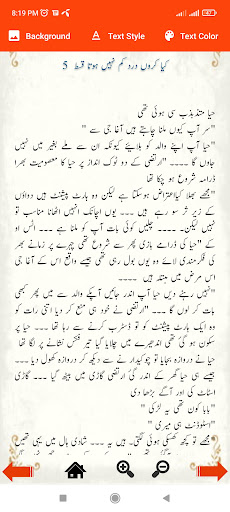 8:19 PM
Background
Text Style
Text Color
کیا کروں درد کم نہیں ہوتا قسط 5
حیا متذبذب سی ہوئی تھی
"سر آپ کیوں ملنا چاہتے ہیں آغا جی سے "
"حیا آپ اپنے والد کو بلائیے کیونکہ ان سے ملے بغیر میں نہیں
جاوں گا ۔۔۔۔ "ارتضی کے دو ٹوک انداز پر حیا کا معصومیت بھرا
ڈرامہ شروع ہو چکا تھا
"مجھے بھلا کیااعتراض ہوسکتا ہے لیکن وہ ہارٹ پیشنٹ ہیں دواؤں
کے زیر اثر سو رہے ہیں ۔۔۔ یوں اچانک انہیں اٹھانا مناسب تو
نہیں لیکن۔ ۔۔۔۔ چلیں کوئی بات آپ کو ملنا ہے ۔۔۔ انس او
کے "حیا کی ڈرامے بازی پھر سے شروع تھی چہرے پر زمانے بھر
کی فکرمندی لائے وہ یوں بول رہی تھی جیسے واقع اس کے آغا جی
اس مرض میں مبتلا ہیں ۔۔۔۔
"نہیں رہنے دیں حیا آپ اندر جائیں آپکے والد سے میں پھر کبھی
بات کر لوں گا ۔۔۔ "ارتضی نے خود ہی منع کر دیا اتنی رات کو
وہ ایک ہارٹ پیشنٹ کو تو ڈسٹرب کرنے سے رہا تھا ۔۔۔ حیا پر
سکون ہو گئ تھی اندھیرے میں چلایا گیا تیر ٹھیک نشانے پر لگا تھا
حیا نے دروازہ بجایا تو چوکیدار نے سے دیکھ کر دروازہ کھول دیا ۔۔۔
جیسے ہی حیا گھر کے اندر گئ ارتضی گاڑی میں بیٹھ گیا ۔۔۔ گاڑی
اسٹاٹ کی اور آگے بڑھا دی
"بابا کون تھی یہ لڑکی "
"اسٹوڈنٹ ہی میری "
"مجھے تو کچھ کھسکی ہوئی لگتی۔ ہیں یہ ۔۔۔ شادی ہال میں یہی تھیں